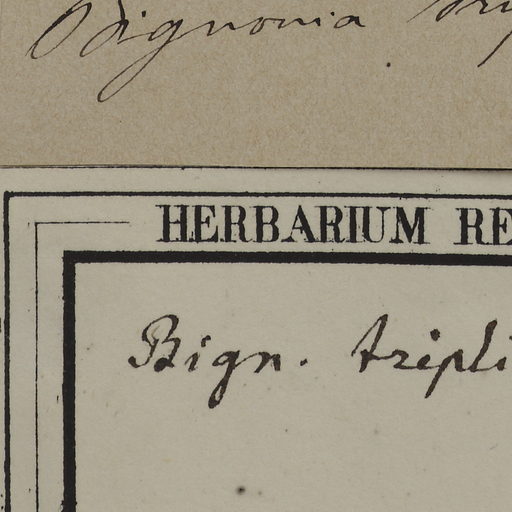 Bignonia
HERBARIUM RE
Bign. tripli